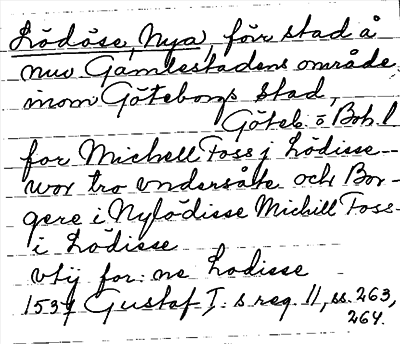 Lödöse, Nya, förr stad å
nuv Gamlestadens område
inom Göteborgs stad,
Göteb. o Boh. l
for Michell Foss j Lödisse
wor tro vndersåte och Bor-
gere i Nylödisse Michill Foss
i Lödisse
vtij for: ne Lodisse
1537 Gustaf I: s reg. 11, ss. 263,
264.